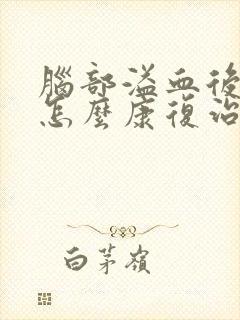 腦部溢血後
怎麼康復治
白茅嶺